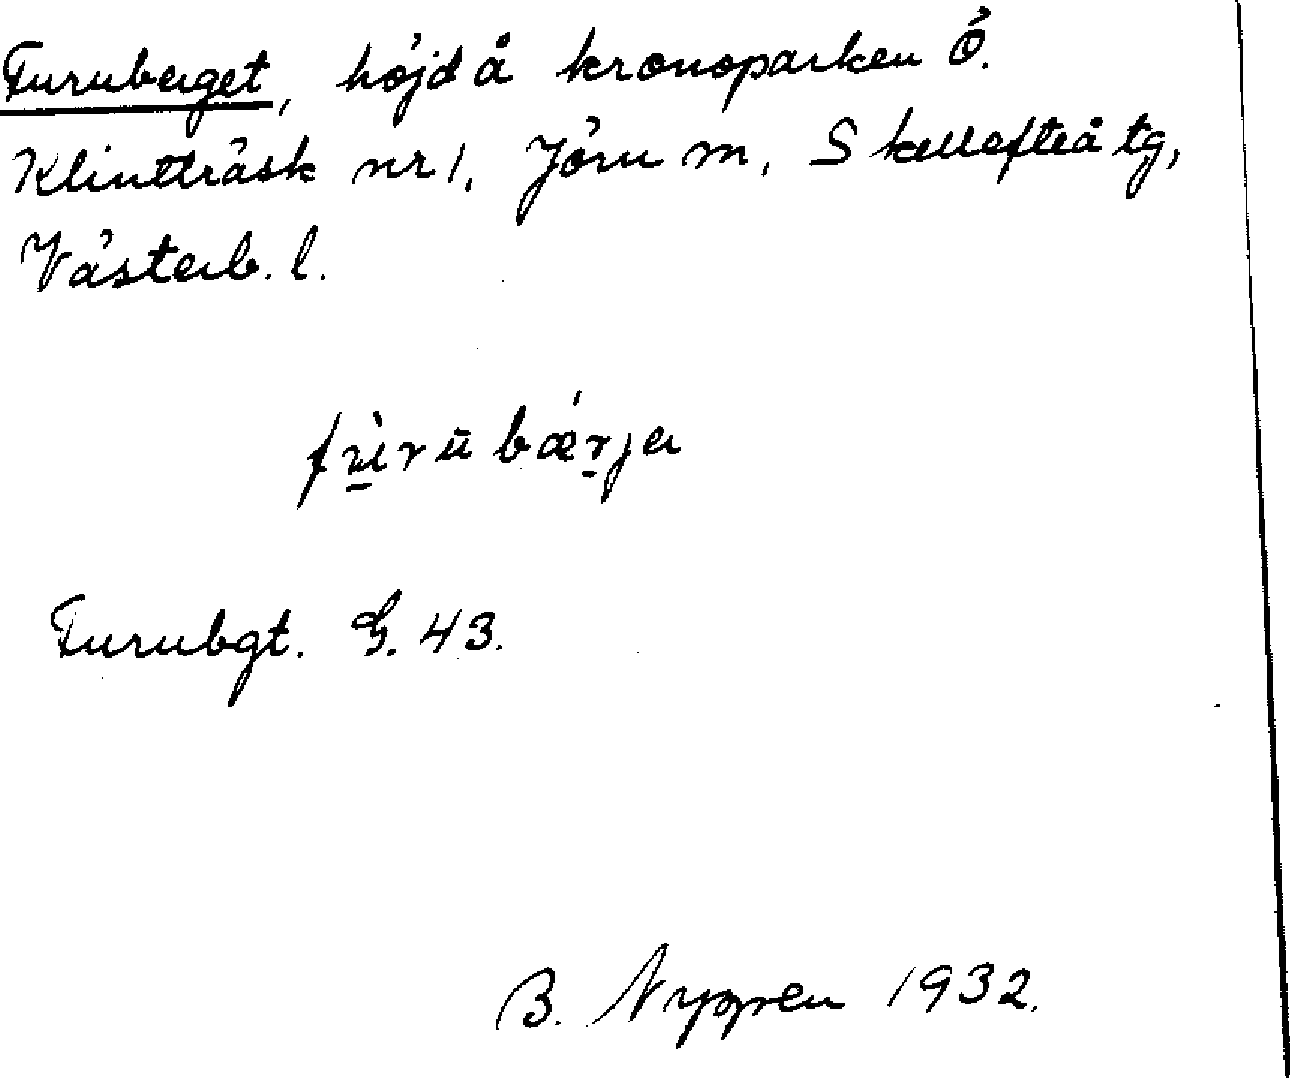 Furuberget, höjd å kronoparken Ö.
Klintträsk nr 1, Jörn sn, Skellefteå tg,
Västerb. l.
fùrūbǽrjɐ
Furubgt. G. 43.
B. Nyppen 1932.